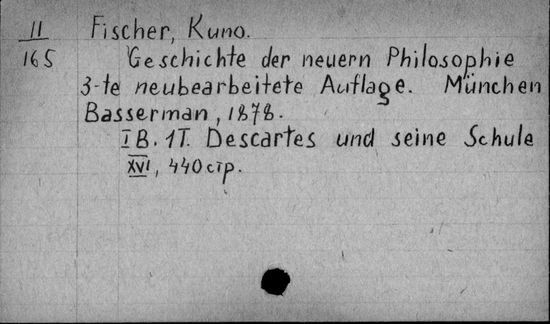 II Fischer, Kuno.
165 Geschichte der neuern Philosophie
3-te neubearbeitete Auflage. München
Basserman, 1878.
I B. 1T. Descartes und seine Schule
XVI, 440 стр.